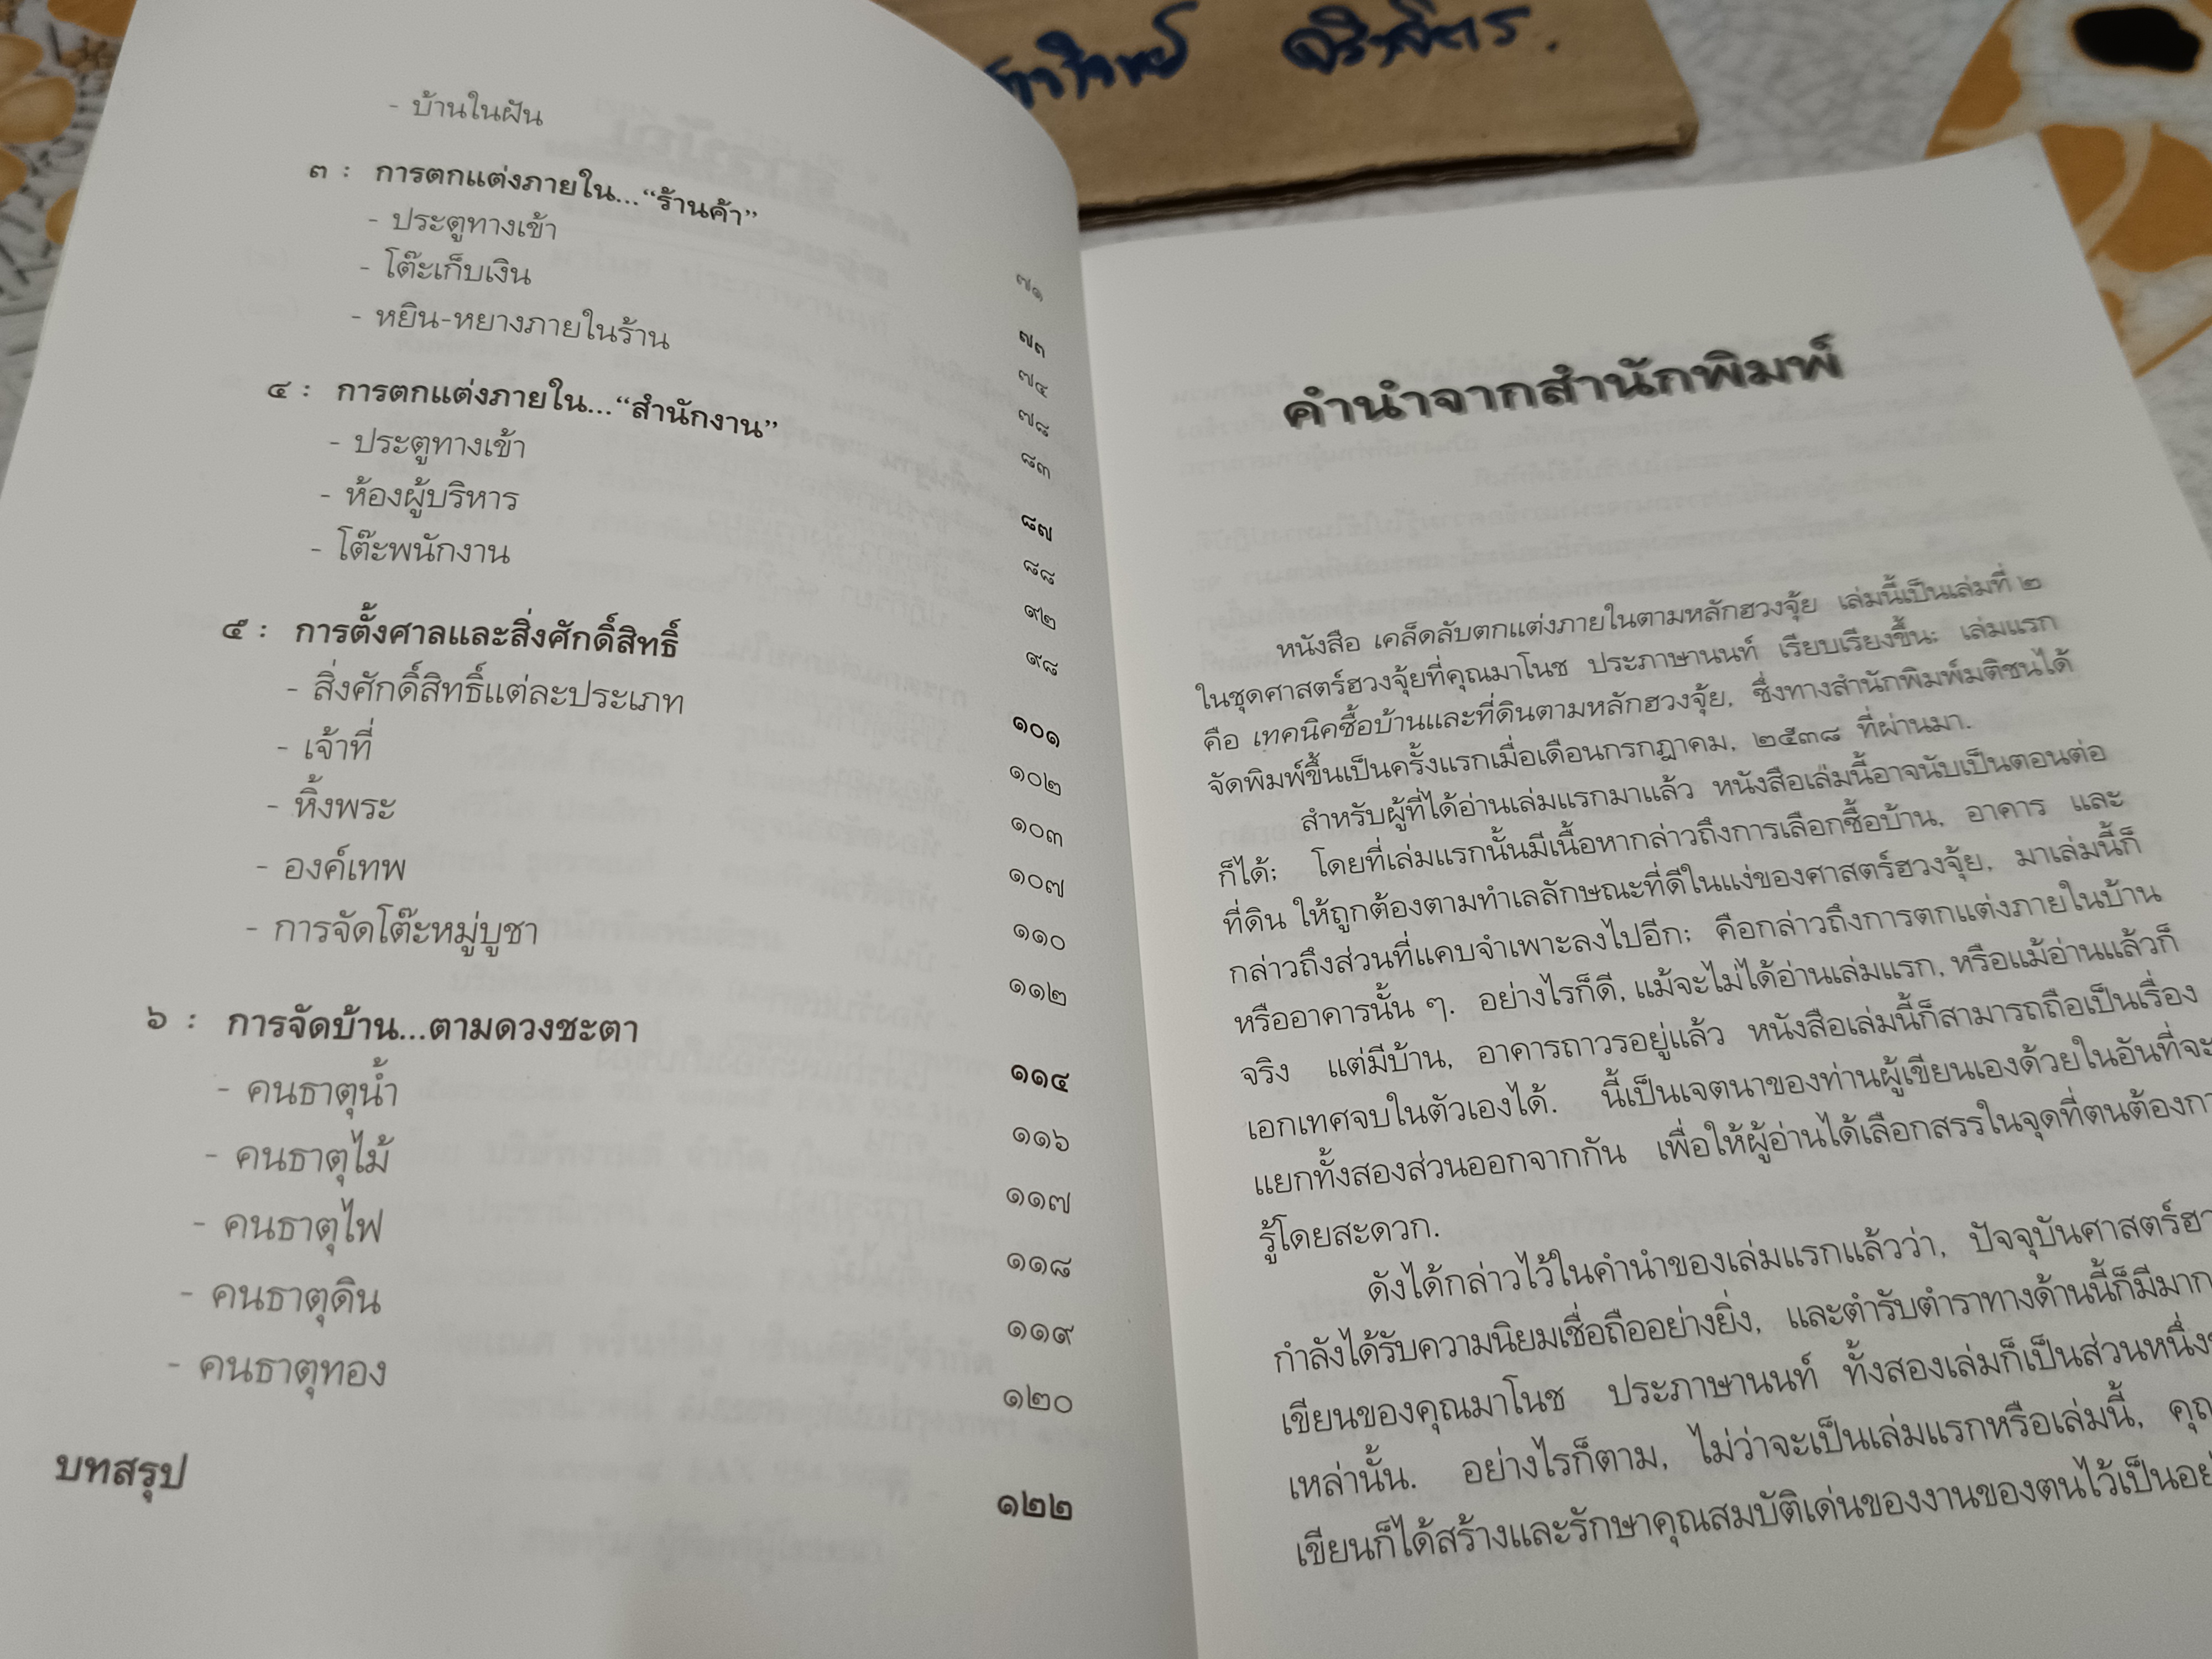 - บ้านในฝัน ๗๑
๓ : การตกแต่งภายใน...“ร้านค้า” ๗๓
- ประตูทางเข้า ๗๔
- โต๊ะเก็บเงิน ๗๘
- หยิน-หยางภายในร้าน ๘๓
๔ : การตกแต่งภายใน...“สำนักงาน” ๘๗
- ประตูทางเข้า ๘๘
- ห้องผู้บริหาร ๙๒
- โต๊ะพนักงาน ๙๘
๕ : การตั้งศาลและสิ่งศักดิ์สิทธิ์ ๑๐๑
- สิ่งศักดิ์สิทธิ์แต่ละประเภท ๑๐๒
- เจ้าที่ ๑๐๓
- หิ้งพระ ๑๐๗
- องค์เทพ ๑๑๐
- การจัดโต๊ะหมู่บูชา ๑๑๒
๖ : การจัดบ้าน...ตามดวงชะตา ๑๑๔
- คนธาตุน้ำ ๑๑๖
- คนธาตุไม้ ๑๑๗
- คนธาตุไฟ ๑๑๘
- คนธาตุดิน ๑๑๙
- คนธาตุทอง ๑๒๐
บทสรุป ๑๒๒
คำนำจากสำนักพิมพ์
หนังสือ เคล็ดลับตกแต่งภายในตามหลักฮวงจุ้ย เล่มนี้เป็นเล่มที่ ๒
ในชุดศาสตร์ฮวงจุ้ยที่คุณมาโนช ประภาษานนท์ เรียบเรียงขึ้น; เล่มแรก
คือ เทคนิคซื้อบ้านและที่ดินตามหลักฮวงจุ้ย, ซึ่งทางสำนักพิมพ์มติชนได้
จัดพิมพ์ขึ้นเป็นครั้งแรกเมื่อเดือนกรกฎาคม, ๒๕๓๘ ที่ผ่านมา.
สำหรับผู้ที่ได้อ่านเล่มแรกมาแล้ว หนังสือเล่มนี้อาจนับเป็นตอนต่อ
ก็ได้; โดยที่เล่มแรกนั้นมีเนื้อหากล่าวถึงการเลือกซื้อบ้าน, อาคาร และ
ที่ดิน ให้ถูกต้องตามทำเลลักษณะที่ดีในแง่ของศาสตร์ฮวงจุ้ย, มาเล่มนี้ก็
กล่าวถึงส่วนที่แคบจำเพาะลงไปอีก; คือกล่าวถึงการตกแต่งภายในบ้าน
หรืออาคารนั้น ๆ. อย่างไรก็ดี, แม้จะไม่ได้อ่านเล่มแรก, หรือแม้อ่านแล้วก็
จริง แต่มีบ้าน, อาคารถาวรอยู่แล้ว หนังสือเล่มนี้ก็สามารถถือเป็นเรื่อง
เอกเทศจบในตัวเองได้. นี้เป็นเจตนาของท่านผู้เขียนเองด้วยในอันที่จะ
แยกทั้งสองส่วนออกจากกัน เพื่อให้ผู้อ่านได้เลือกสรรในจุดที่ตนต้องกา
รู้โดยสะดวก.
ดังได้กล่าวไว้ในคำนำของเล่มแรกแล้วว่า, ปัจจุบันศาสตร์ฮว
กำลังได้รับความนิยมเชื่อถืออย่างยิ่ง, และตำรับตำราทางด้านนี้ก็มีมาก
เขียนของคุณมาโนช ประภาษานนท์ ทั้งสองเล่มก็เป็นส่วนหนึ่ง
เหล่านั้น. อย่างไรก็ตาม, ไม่ว่าจะเป็นเล่มแรกหรือเล่มนี้, คุณ
เขียนก็ได้สร้างและรักษาคุณสมบัติเด่นของงานของตนไว้เป็นอย